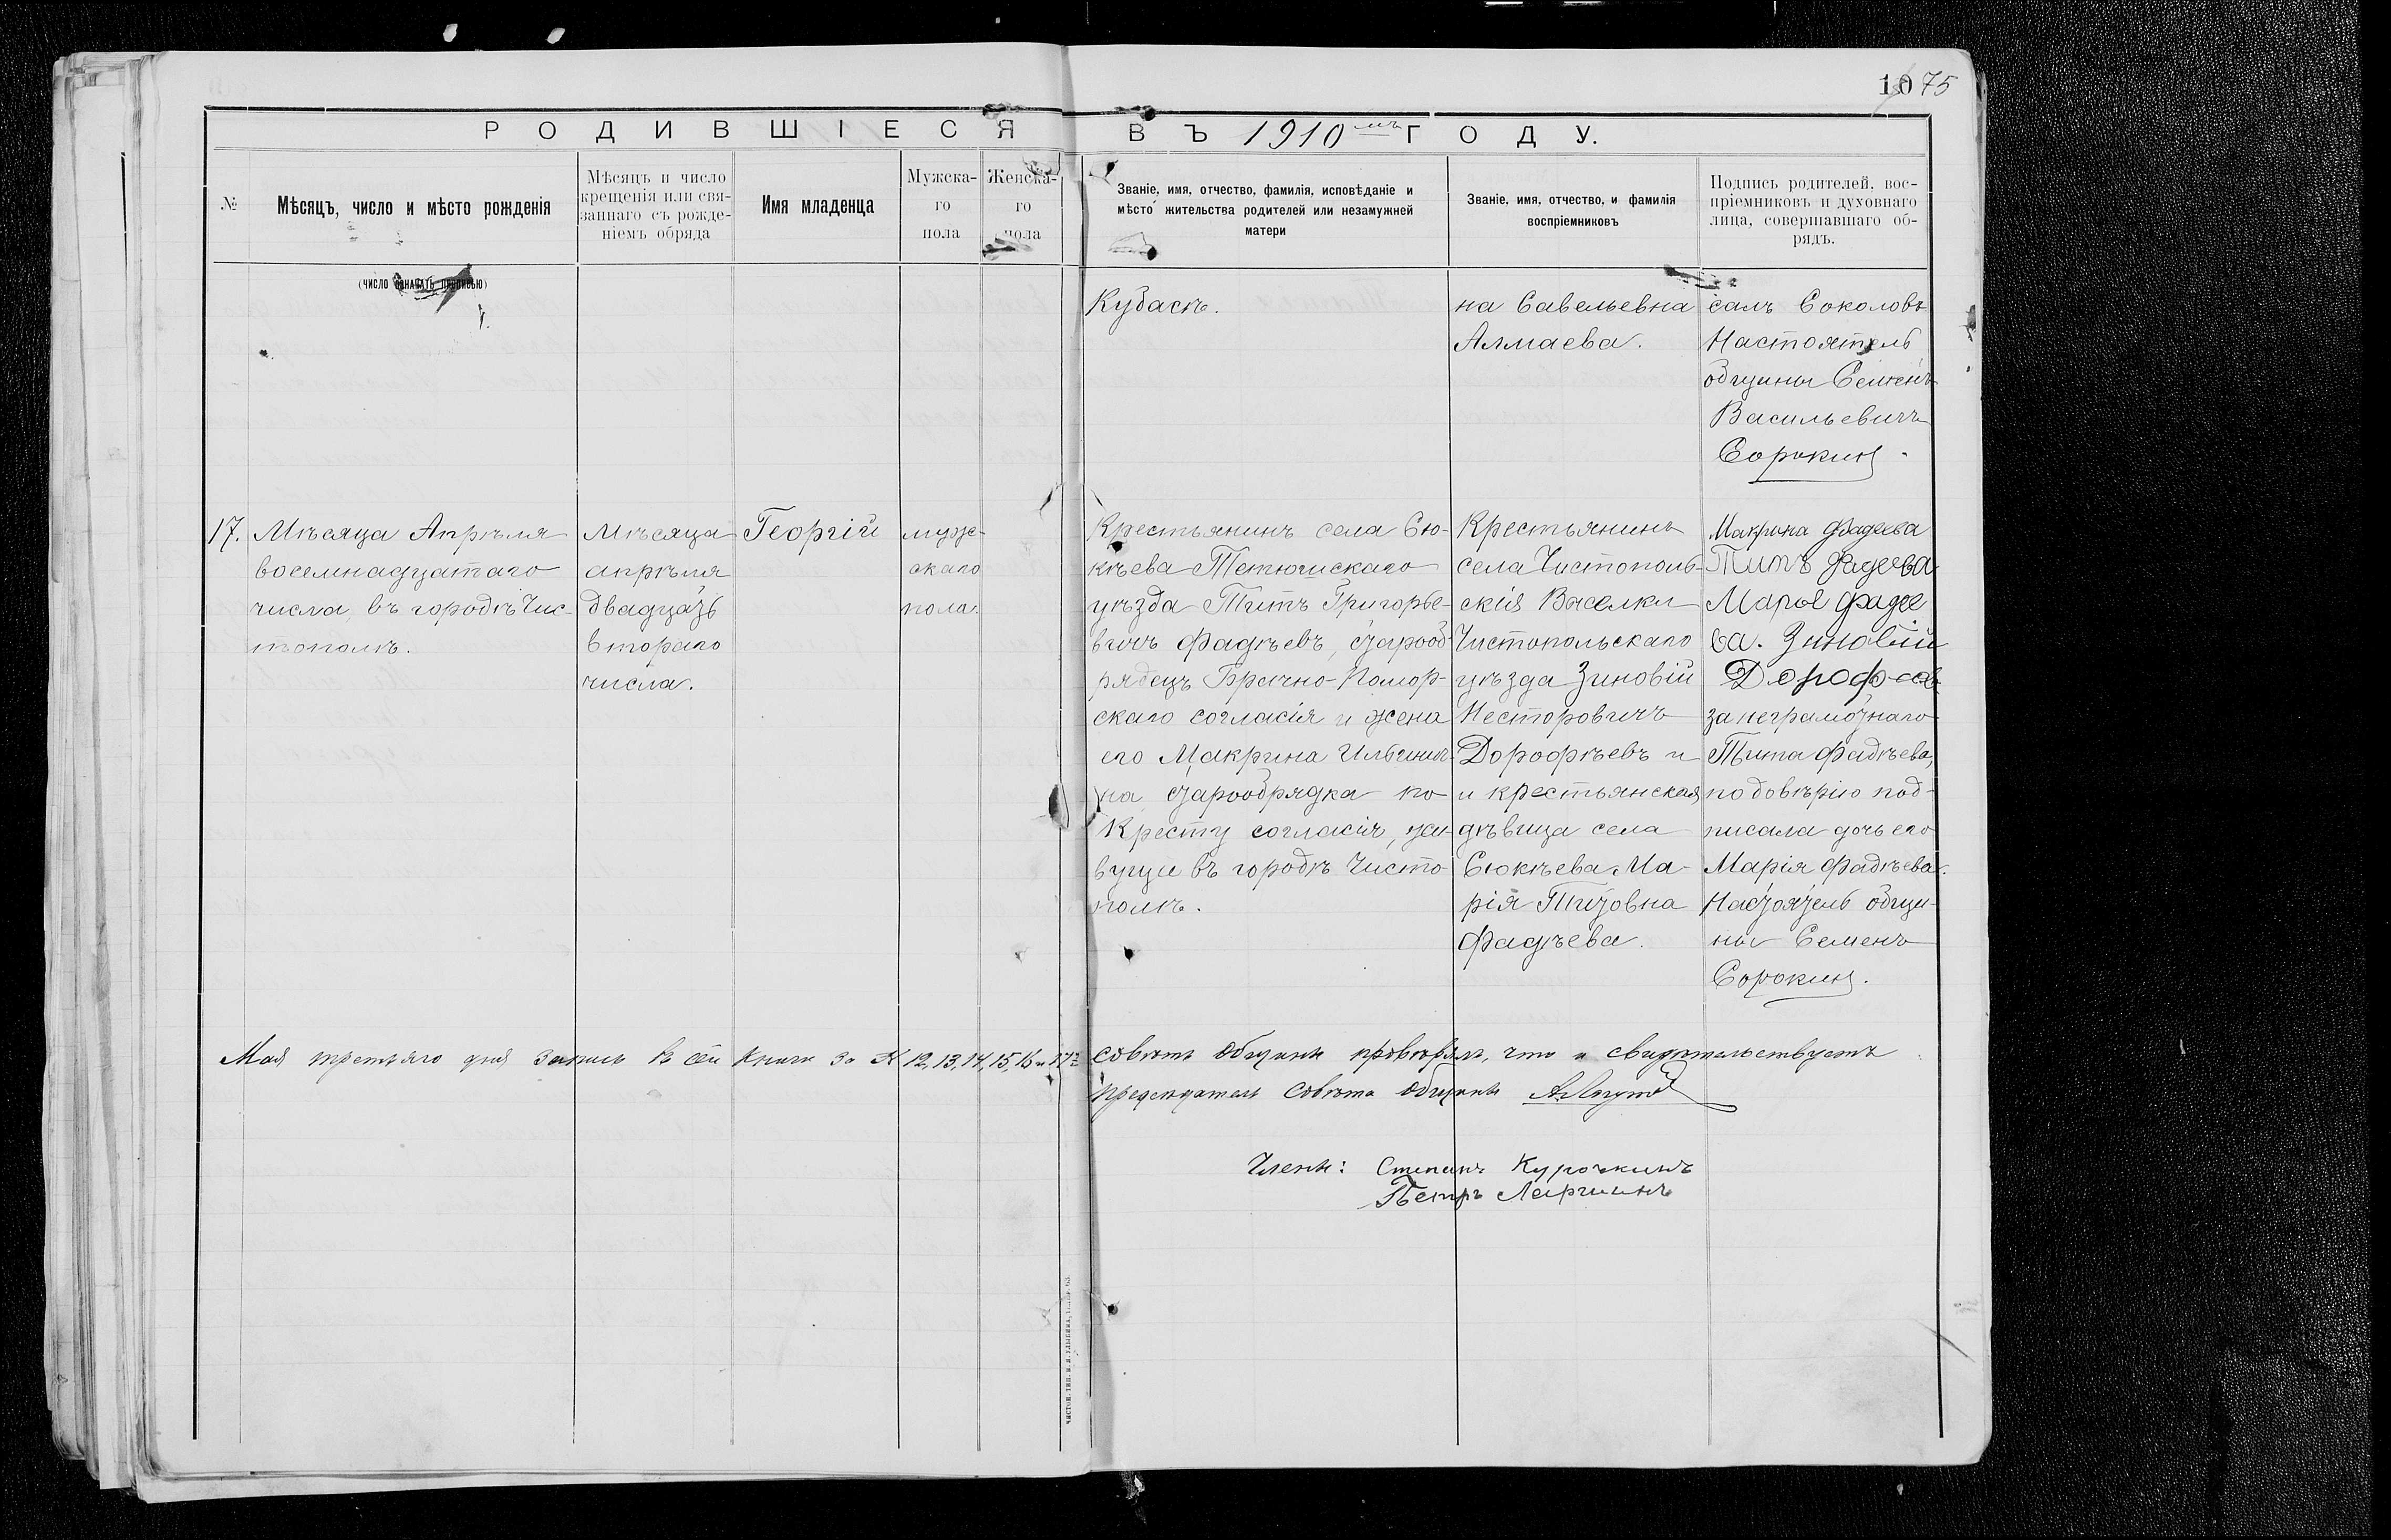 10 75
РОДИВШІЕСЯ ВЪ 1910мъ ГОДУ.
№
Мѣсяцъ, число и мѣсто рожденія
(число означать прописью)
Мѣсяцъ и число
крещенія или свя-
заннаго съ рожде-
ніемъ обряда
Имя младенца
Мужска-
го
пола
Женска-
го
пола
Званіе, имя, отчество, фамилія, исповѣданіе и
мѣсто жительства родителей или незамужней
матери
Званіе, имя, отчество, и фамилія
воспріемниковъ
Подпись родителей, вос-
пріемниковъ и духовнаго
лица, совершавшаго об-
рядъ.
Кубасъ.
на Савельевна
Алмаева.
салъ Соколовъ
Настоятель
общины Семенъ
Васильевичъ
Сорокинъ.
17.
Мѣсяца Апрѣля
восемнадцатаго
числа, въ городѣ Чис-
тополѣ.
Мѣсяца
апрѣля
двадцать
втораго
числа.
Георгій
муж-
скаго
пола.
Крестьянинъ села Сю-
кѣева Тетюшскаго
уѣзда Титъ Григорье-
вичъ Фадѣевъ, старооб-
рядецъ Брачно-Помор-
скаго согласія и жена
его Макрина Ильинич-
на старообрядка по
Кресту согласія, жи-
вущіе въ городѣ Чисто-
полѣ.
Крестьянинъ
села Чистополь-
скія Выселки
Чистопольскаго
уѣзда Зиновій
Несторовичъ
Дорофѣевъ и
и крестьянская
дѣвица села
Сюкѣева Ма-
рія Титовна
Фадѣева.
Макрина Фадеева
Титъ Фадеева
Марье Фадее
ва. Зиновій
Дорофеев
за неграмотнаго
Тита Фадѣева,
по довѣрію под-
писала дочь его
Марія Фадѣева.
Настоятель общи-
ны Семенъ
Сорокинъ.
Мая третьяго дня запись в сей книги за № 12, 13, 14, 15, 16 и 17й совѣтъ общины провѣрялъ, что и свидѣтельствуетъ
предсѣдатель совѣта общины
Члены: Степанъ Курочкинъ
Петръ Ларчинъ